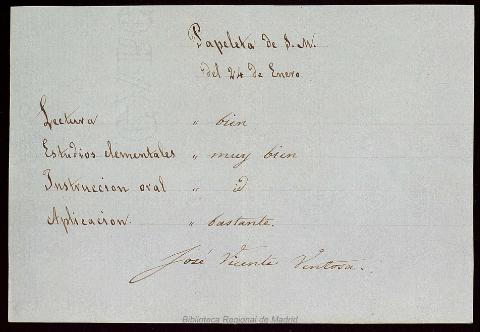 Papeleta de S. M.
del 24 de Enero
Lectura " bien
Estudios elementales " muy bien
Instruccion oral " D
Aplicacion " bastante.
José Vicente Ventosa.
Biblioteca Regional de Madrid